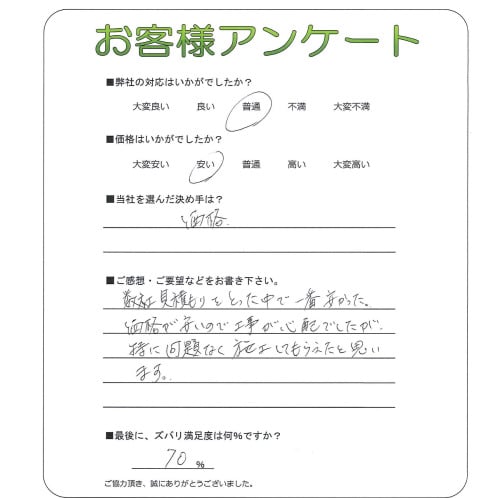 お客様アンケート
■弊社の対応はいかがでしたか?
大変良い 良い 普通 不満 大変不満
■価格はいかがでしたか?
大変安い 安い 普通 高い 大変高い
■当社を選んだ決め手は?
価格.
■ご感想・ご要望などをお書き下さい。
数社見積もりをとった中で一番安かった。
価格が安いので工事が心配でしたが、
特に問題なく施工してもらえたと思い
ます。
■最後に、ズバリ満足度は何%ですか?
70 %
ご協力頂き、誠にありがとうございました。